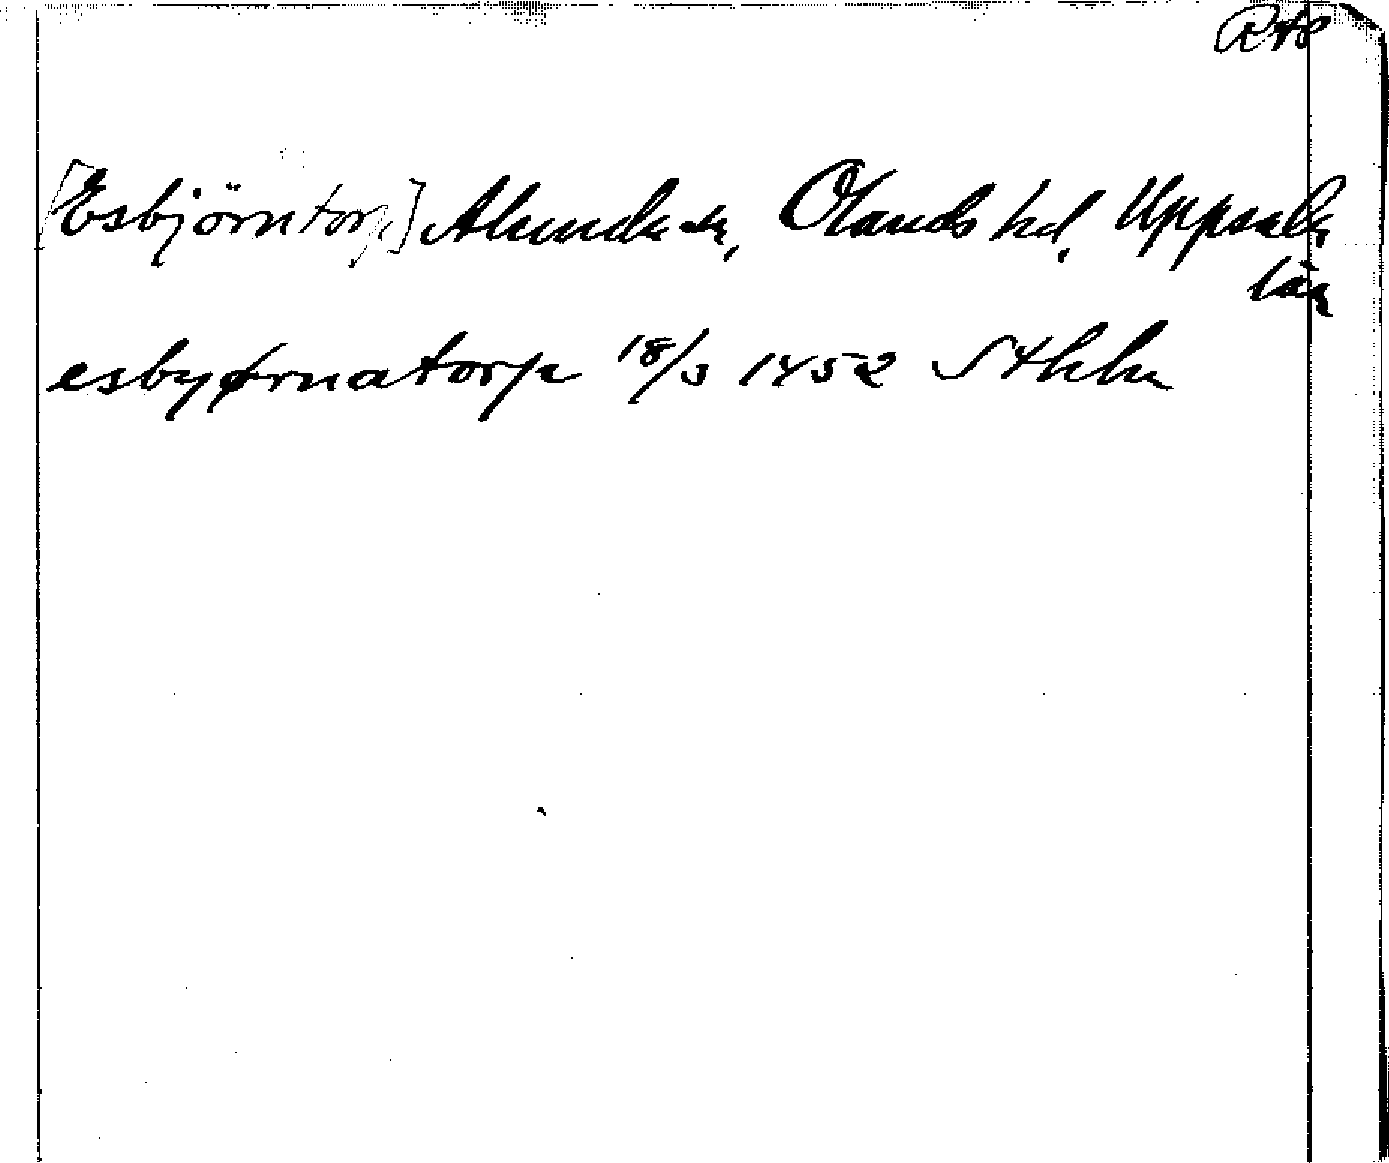 RAp
[Esbjörntorp] Alunda sn, Olands hd, Uppsala
län
esbyørnatorp 18/3 1452 Sthlm